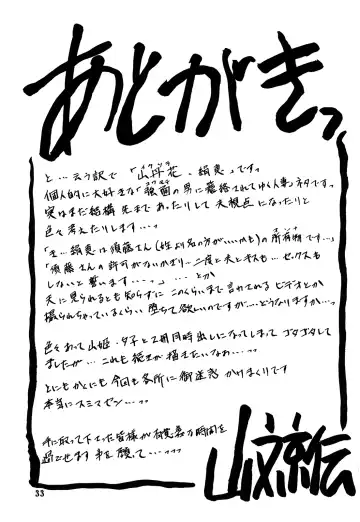 あとがきっ
と…云う訳で「山丹花、絹恵」でっす。
個人的に大好きな「強面の男に蓄落されてゆく人妻」ネタですっ。
実はまだ結構先まであったりして夫視点になったりと
色々考えたりします…っ。
須藤さん(姓より名の方がいいかも)の所有物です…」
「須藤さんの許可がないかぎり…二度と夫とキスも…セックスも
しないと誓います…っ」…とか
夫に見られるとも知らずにこのくらいまで言わされるビデオとか
撮られちゃっているくらい堕ちて欲しいのですが……どうなりますか…っ。
色々あって山姫・夕子と2冊同時出しになってしまってゴタゴタして
ましたが…これも続きが描きたいなぁ…っ
とにもかくにも今回も各所に御迷惑かけまくりです
本当にスミマセン…っっ
手に取って下さった皆様が
時間を
過ごせます事を願って…っっっ
山文京伝
33